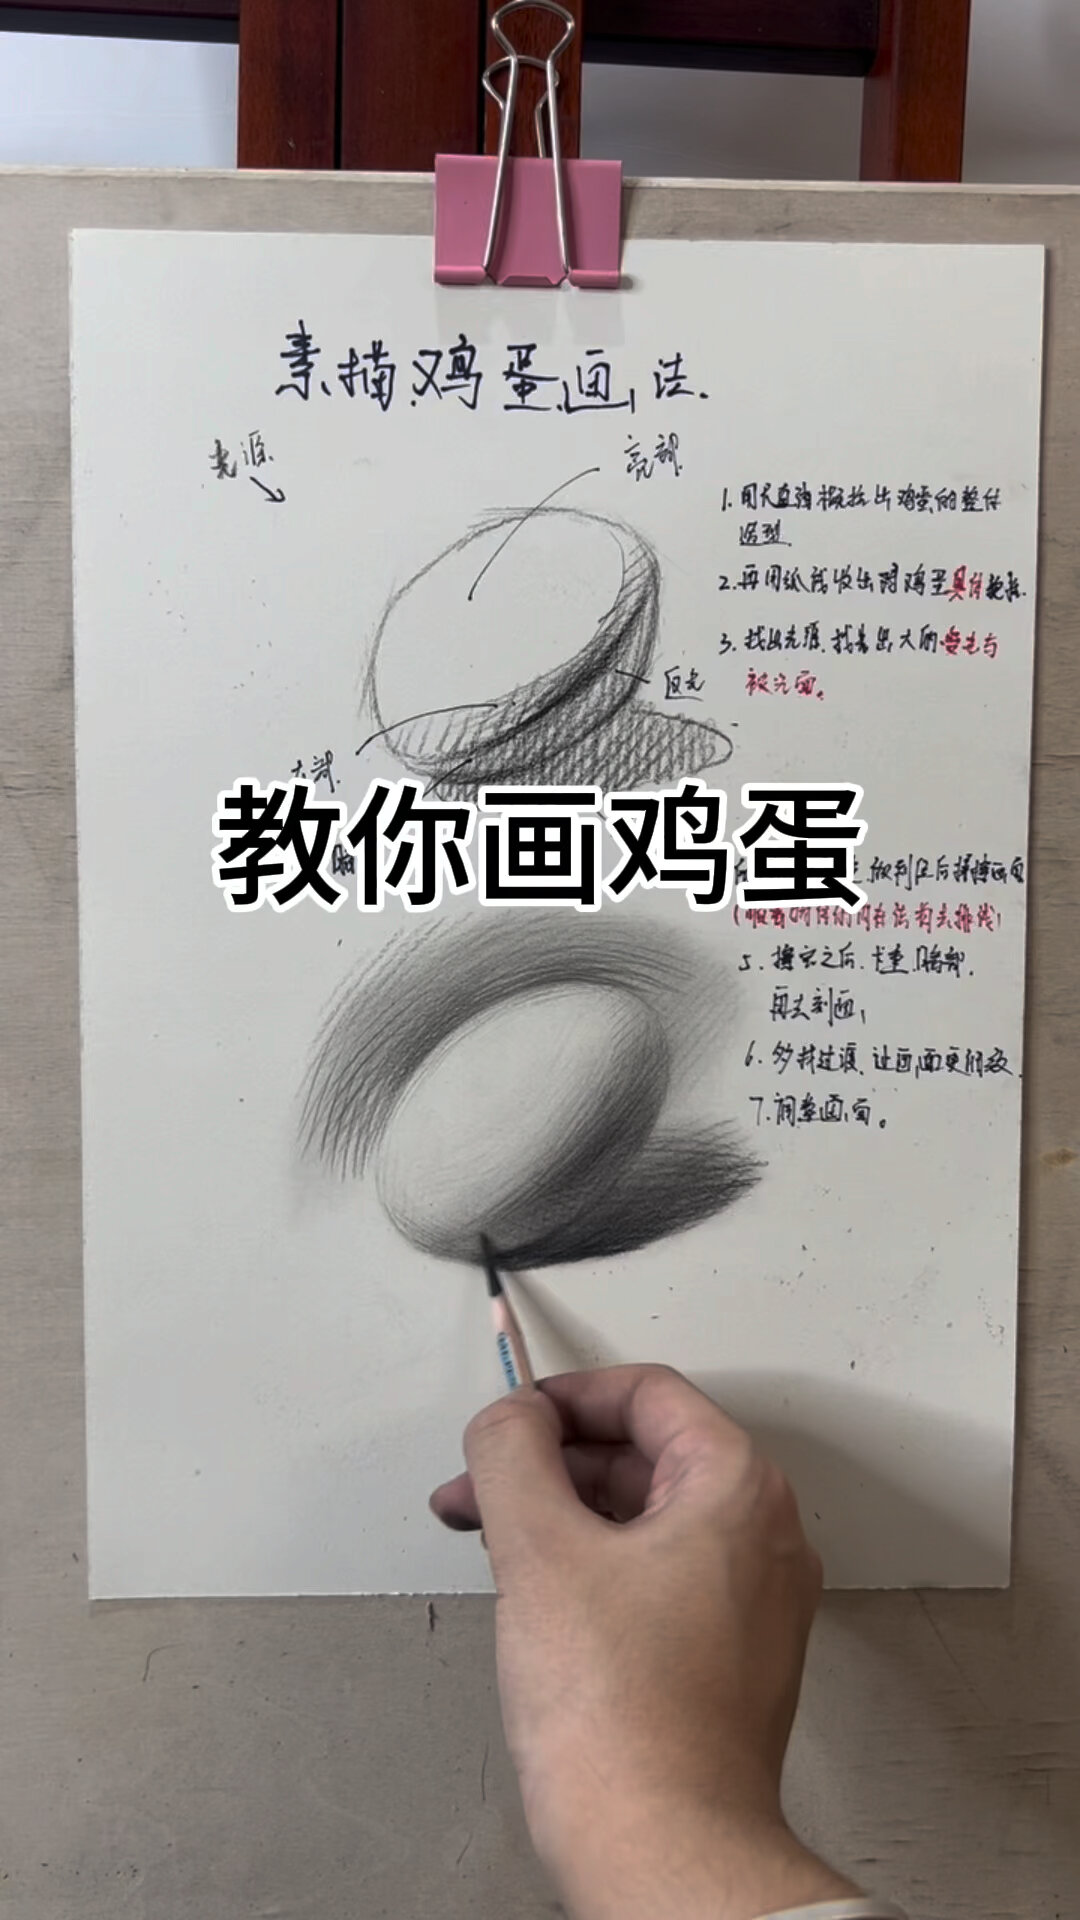 素描鸡蛋画法.
光源
亮部
1.用长直线概括出鸡蛋的整体
造型.
2.再用弧线收出时鸡蛋具体轮廓.
3.找出光源.找出大的受光与
被光面。
反光
教你画鸡蛋
5.擦完之后.卡重暗部.
再去刻画,
6.多找过渡.让画面更细致.
7.调整画面。